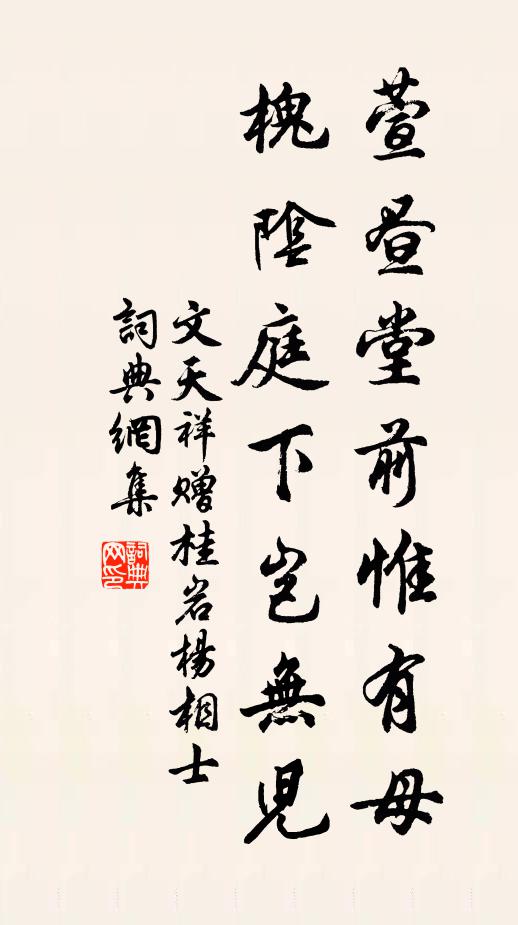 萱昼堂前惟有母
槐陰庭下豈無兒
文天祥赠桂岩楊相士
詞典網集
詞典网印